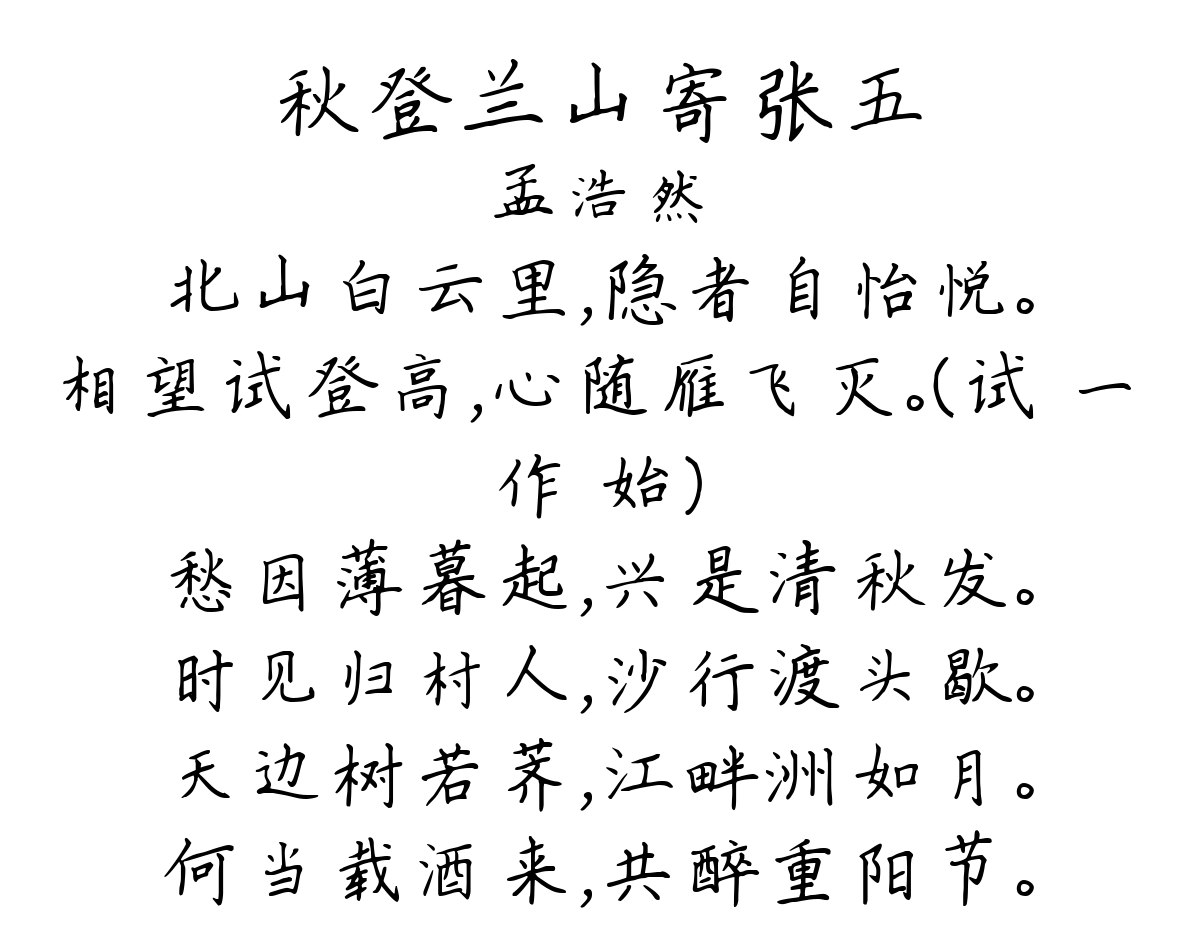 秋登兰山寄张五
孟浩然
北山白云里,隐者自怡悦。
相望试登高,心随雁飞灭。(试 一
作 始)
愁因薄暮起,兴是清秋发。
时见归村人,沙行渡头歇。
天边树若荠,江畔洲如月。
何当载酒来,共醉重阳节。